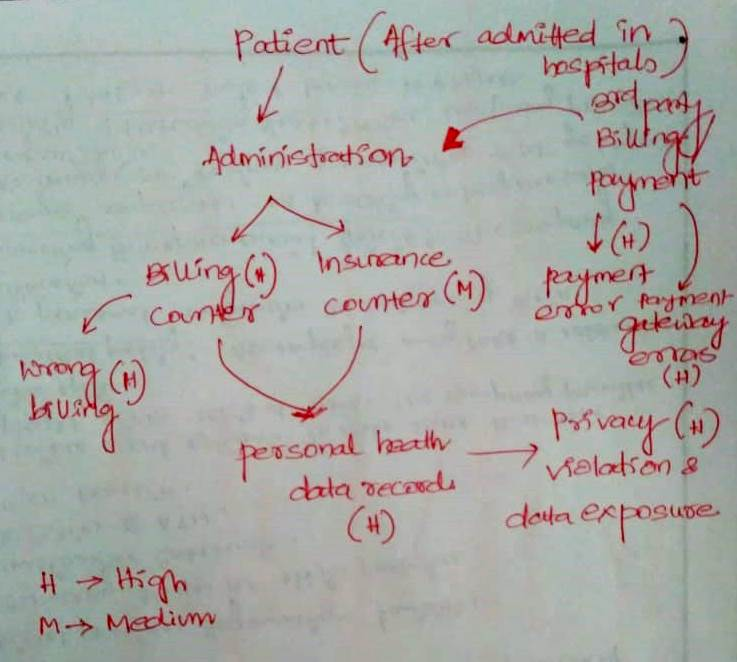 Patient (After admitted in
hospitals)
3rd party
Billing/
payment
Administration
(H)
payment
error
payment
gateway
errors
(H)
Billing (H)
counter
Insurance
counter (M)
Wrong (H)
billing
personal heath
data records
(H)
Privacy (H)
violation &
data exposure
H → High
M → Medium